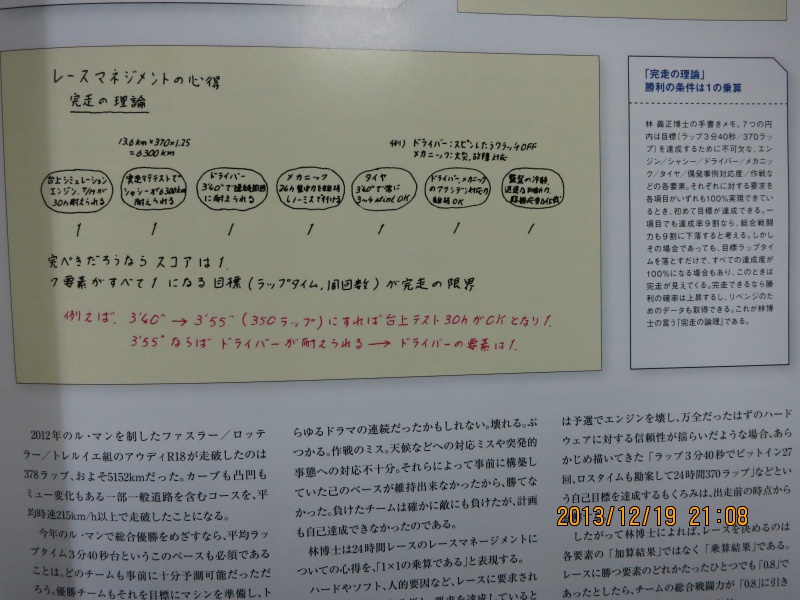 レースマネジメントの心得
完走の理論
13.6km×370×1.25
=6300km
例) ドライバー:スピンしたらクラッチOFF
メカニック:火災、故障対応
台上シミュレーション
エンジン、T/Mが
30h耐えられる
実走タテテストで
シャシーが6300km
耐えられる
ドライバー
3'40"で連続周回
に耐えられる
メカニック
24h集中力を維持
しノーミスで行ける
タイヤ
3'40"で常に
3~4stint OK
ドライバー、メカニック
のアクシデント対応の
組織OK
監督の冷静、
迅速な
1 1 1 1 1 1 1
完ぺきだろうなら スコアは1.
7要素がすべて1になる目標(ラップタイム、周回数)が完走の限界
例えば、3'40"→3'55"(350ラップ)にすれば台上テスト30hがOKとなり1.
3'55"ならばドライバーが耐えられる→ドライバーの要素は1.
「完走の理論」
勝利の条件は1の乗算
林 義正博士の手書きメモ。7つの円
内は目標(ラップ3分40秒/370ラッ
プ)を達成するために不可欠な、エ
ンジン/シャシー/ドライバー/メカニッ
ク/タイヤ/偶発事例対応度/作戦な
どの各要素。それぞれに対する要求を
各項目がいずれも100%実現できてい
るとき、初めて目標が達成できる。一
項目でも達成率9割なら、総合戦闘
力も9割に下落すると考える。しかし
その場合であっても、目標ラップタイ
ムを落とすだけで、すべての達成度が
100%になる場合もあり、このときは
完走が見えてくる。完走できるなら勝
利の確率は上昇するし、リベンジのた
めのデータも取得できる。これが林博
士の言う「完走の論理」である。
2012年のル・マンを制したファスラー/ロッテ
ラー/トレルイエ組のアウディR18が走破したのは
378ラップ、およそ5152kmだった。カーブも凸凹も
ミュー変化もある一部一般道路を含むコースを、平
均時速215km/h以上で走破したことになる。
今年のル・マンで総合優勝をめざすなら、平均ラッ
プタイム3分40秒台というこのペースも必須である
ことは、どのチームも事前に十分予測可能だっただ
ろう。優勝チームもそれを目標にマシンを準備し、ト
らゆるドラマの連続だったかもしれない。壊れる。ぶ
つかる。作戦のミス。天候などへの対応ミスや突発的
事態への対応不十分。それらによって事前に構築し
ていた己のペースが維持出来なかったから、勝てな
かった。負けたチームは確かに敵にも負けたが、計画
も自己達成できなかったのである。
林博士は24時間レースのレースマネージメントに
ついての心得を、「1×1の乗算である」と表現する。
ハードやソフト、人的要因など、レースに要求され
は予選でエンジンを壊し、万全だったはずのハード
ウェアに対する信頼性が揺らいだような場合、あら
かじめ描いてきた「ラップ3分40秒でピットイン27
回、ロスタイムも勘案して24時間370ラップ」などとい
う自己目標を達成するもくろみは、出走前の時点から
したがって林博士によれば、レースを決めるのは
各要素の「加算結果」ではなく「乗算結果」である。
レースに勝つ要素のどれかたったひとつでも「0.8」で
あったとしたら、チームの総合戦闘力が「0.8」に引き
2013/12/19 21:08